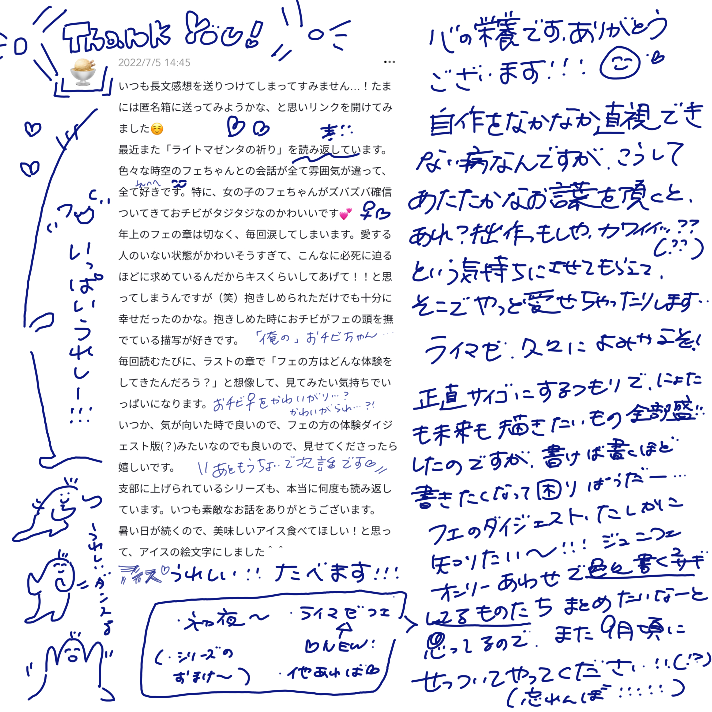 Thank You!
2022/7/5 14:45
いつも長文感想を送りつけてしまってすみません…！たま
には匿名箱に送ってみようかな、と思いリンクを開けてみ
ました☺️
最近また「ライトマゼンタの祈り」を読み返しています。
色々な時空のフェちゃんとの会話が全て雰囲気が違って、
全て好きです。特に、女の子のフェちゃんがズバズバ確信
ついてきておチビがタジタジなのかわいいです💕
年上のフェの章は切なく、毎回涙してしまいます。愛する
人のいない状態がかわいそうすぎて、こんなに必死に迫る
ほどに求めているんだからキスくらいしてあげて！！と思
ってしまうんですが（笑）抱きしめられただけでも十分に
幸せだったのかな。抱きしめた時におチビがフェの頭を撫
でている描写が好きです。
「俺の」おチビちゃん…
毎回読むたびに、ラストの章で「フェの方はどんな体験を
してきたんだろう？」と想像して、見てみたい気持ちでい
っぱいになります。
おチビ♀をかわいがり…?
かわいがられ…?!
いつか、気が向いた時で良いので、フェの方の体験ダイジ
ェスト版(？)みたいなのでも良いので、見せてくださったら
嬉しいです。
あともうちょいで次話です♡
支部に上げられているシリーズも、本当に何度も読み返し
ています。いつも素敵なお話をありがとうございます。
暑い日が続くので、美味しいアイス食べてほしい！と思っ
て、アイスの絵文字にしました＾＾
アイス♡うれしい!! たべます!!!
いっぱいうれしー!!!
うれし…ダンスよ
・初夜〜
(・シリーズの
おまけ〜)
・ライマゼフェ
♡NEW!
・他あれば♡
心の栄養です。ありがとう
ございます!!!
自作をなかなか直視でき
ない病なんですが、こうして
あたたかなお言葉を頂くと、
あれ？拙作もしや、カワイイッ…??
(??)
という気持ちにさせてもらえて、
そこでやっと愛せちゃったりします…
ライマゼ、久々によみやえを!
正直サイゴにするつもりで、
も未来も描きたいもの全部盛…
したのですが、書けば書くほど
書きたくなって困りばうだー…
フェのダイジェスト、たしかに
知りたい〜!!! ジュニフェ
オンリーあわせで
してるものたちまとめたいなーと
思ってるので、また9月頃に
せっついてやってください!!(!?)
(忘れんぼ!!!!!)